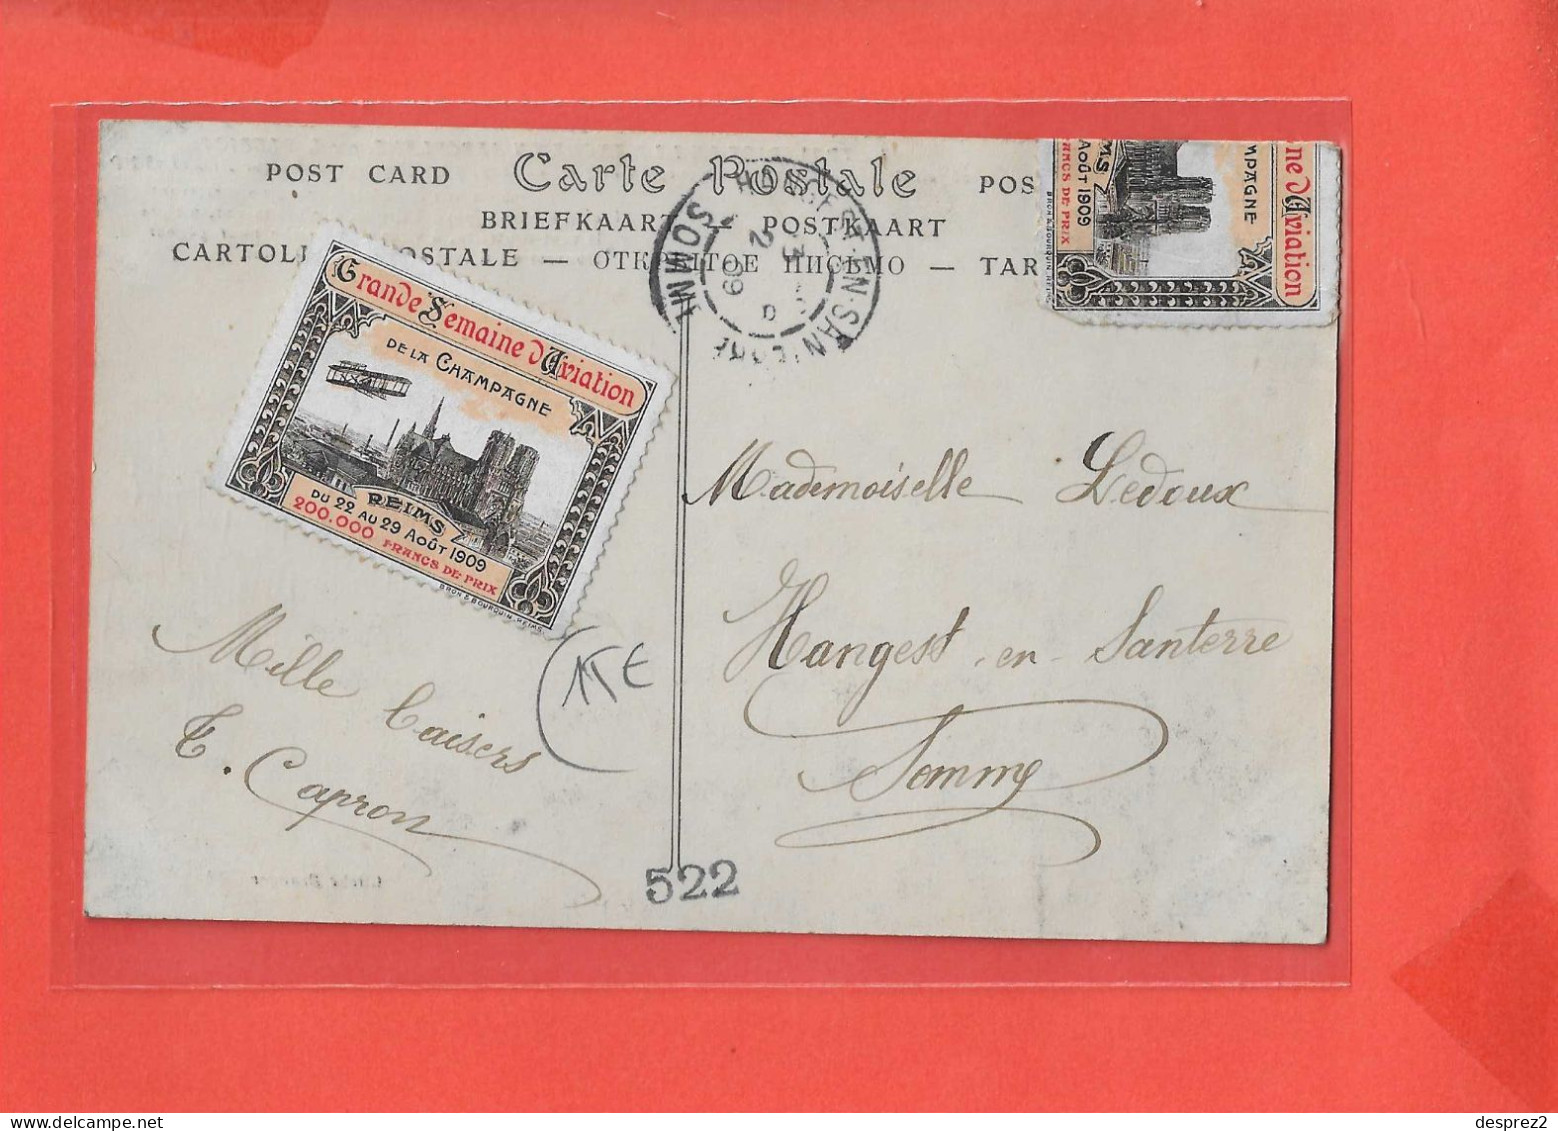 POST CARD Carte Postale POS
BRIEFKAART — POSTKAART
CARTOLI POSTALE — ОТКРЫТОЕ ПИСЬМО — TAR
HANGEST-EN-SANTERRE
SOMME
Grande Semaine d'Aviation
DE LA CHAMPAGNE
REIMS
DU 22 AU 29 AOÛT 1909
200.000 FRANCS DE PRIX
BRON & BOURQUIN. REIMS.
ne d'Aviation
MPAGNE
IMS
AOÛT 1909
ANCS DE PRIX
BRON & BOURQUIN. REIMS
Mademoiselle Ledoux
Hangest-en-Santerre
Somme
Mille baisers
T. Capron
522
desprez2